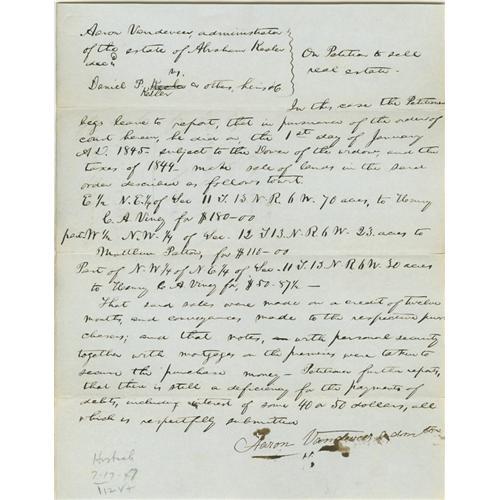 Aaron Vandeveer, administrator
of the estate of Abraham Kesler
decd
vs.
Daniel P. Kesler & others, heirs &c
On Petition to sell
real estate.
In this case the Petitioner
begs leave to report, that in pursuance of the orders of
court herein, he did on the 1st day of January
A.D. 1845. subject to the Dower of the widow and the
taxes of 1844 make sale of lands in the said
order described as follows towit.
E 1/2 N.E. 1/4 of Sec 11 T. 13 N. R 6 W. 70 acres, to Henry
C. A Viney for $180-00
part W 1/2 N.W. 1/4 of Sec. 12 T 13 N. R 6 W. 23 acres to
Matthew Patton, for $110-00
Part of N.W 1/4 of N.E 1/4 of Sec. 11 T. 13 N R 6 W. 30 acres
to Henry C. A Viney for $50-87 1/2 -
That said sales were made on a credit of twelve
months, and conveyances made to the respective pur
chasers; and that notes, with personal security
together with mortgages on the premises were taken to
secure the purchase money - Petitioner further reports,
that there is still a deficiency for the payments of
debts, including interest of some 40 or 50 dollars, all
which is respectfully submitted
Aaron Vandeveer admtor